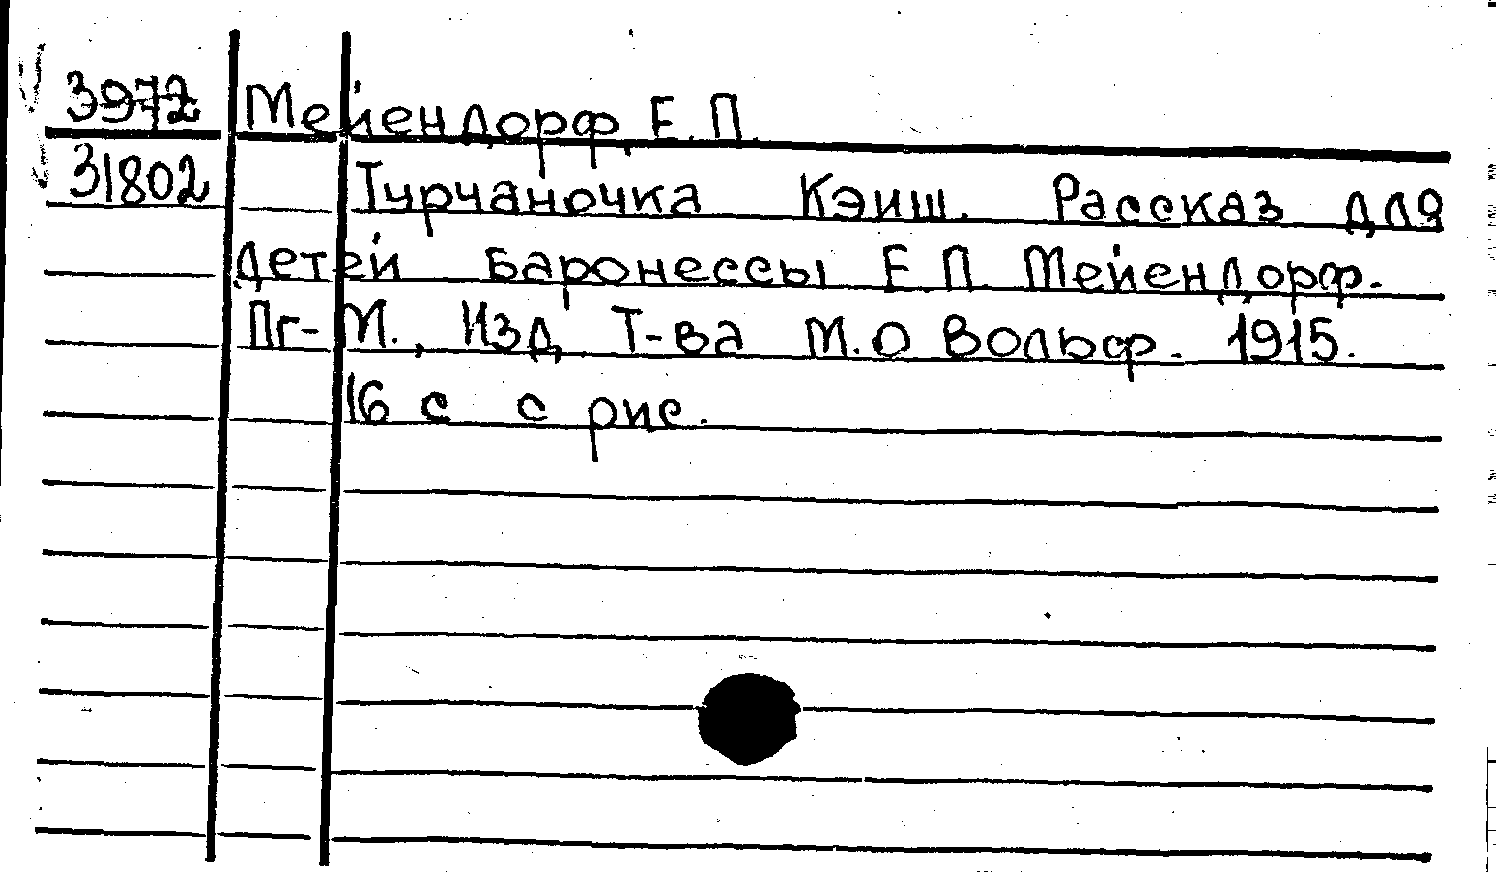 3972 Мейендорф, Е. П.
31802 Турчаночка Кэиш. Рассказ для
детей баронессы Е. П. Мейендорф.
Пг-М., Изд. Т-ва М. О Вольф. 1915.
16 с с рис.